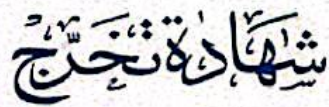 شَهَادَة تَخَرُّج